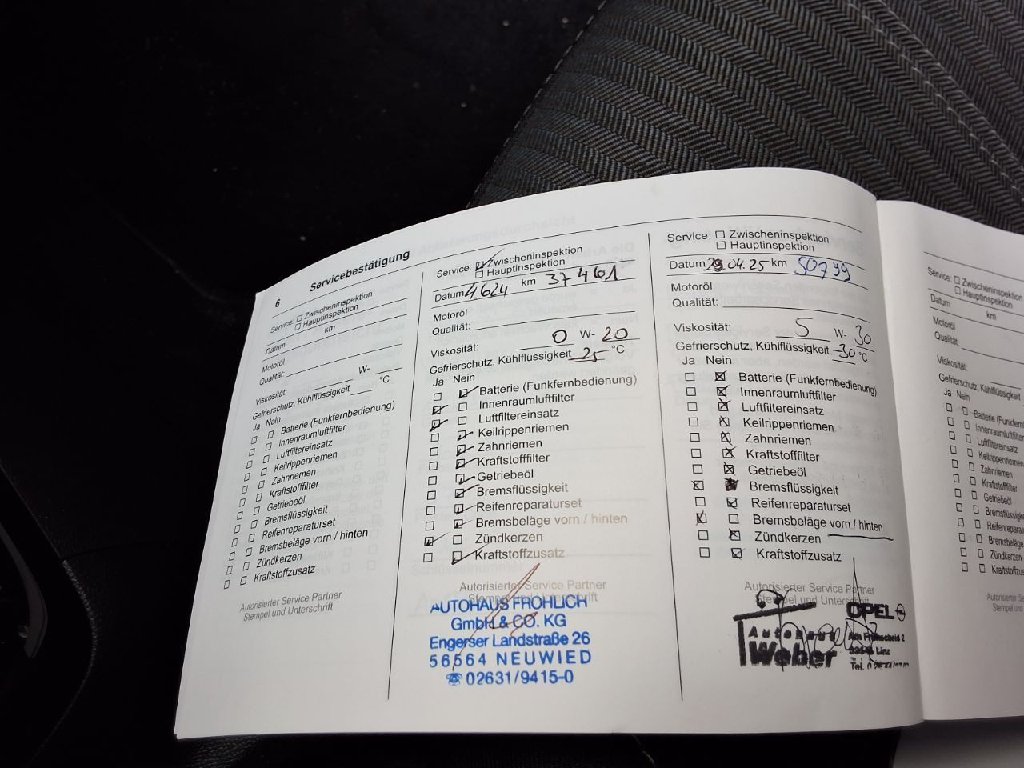 6 Servicebestätigung
Service: Zwischeninspektion
Hauptinspektion
Datum km
Motoröl
Qualität:
Viskosität: W-
Gefrierschutz, Kühlflüssigkeit °C
Ja Nein
Batterie (Funkfernbedienung)
Innenraumluftfilter
Luftfiltereinsatz
Keilrippenriemen
Zahnriemen
Kraftstofffilter
Getriebeöl
Bremsflüssigkeit
Reifenreparaturset
Bremsbeläge vorn / hinten
Zündkerzen
Kraftstoffzusatz
Autorisierter Service Partner
Stempel und Unterschrift
Service: Zwischeninspektion
Hauptinspektion
Datum 4624 km 37461
Motoröl
Qualität:
Viskosität: 0 W- 20
Gefrierschutz, Kühlflüssigkeit 25 °C
Ja Nein
Batterie (Funkfernbedienung)
Innenraumluftfilter
Luftfiltereinsatz
Keilrippenriemen
Zahnriemen
Kraftstofffilter
Getriebeöl
Bremsflüssigkeit
Reifenreparaturset
Bremsbeläge vorn / hinten
Zündkerzen
Kraftstoffzusatz
Autorisierter Service Partner
Stempel und Unterschrift
AUTOHAUS FRÖHLICH
GmbH & CO. KG
Engerser Landstraße 26
56564 NEUWIED
☎ 02631/9415-0
Service Zwischeninspektion
Hauptinspektion
Datum 29.04.25 km 50799
Motoröl
Qualität:
Viskosität: 5 W- 30
Gefrierschutz, Kühlflüssigkeit -30 °C
Ja Nein
Batterie (Funkfernbedienung)
Innenraumluftfilter
Luftfiltereinsatz
Keilrippenriemen
Zahnriemen
Kraftstofffilter
Getriebeöl
Bremsflüssigkeit
Reifenreparaturset
Bremsbeläge vorn / hinten
Zündkerzen
Kraftstoffzusatz
Autorisierter Service Partner
Stempel und Unterschrift
OPEL
Autohaus
Weber
Linz
Tel.
Service:
Datum
km
Motoröl
Qualität
Viskosität:
Gefrierschutz, Kühlflüssigkeit
Ja Nein
Batterie
Zahnriemen
Getriebeöl
Zündkerzen